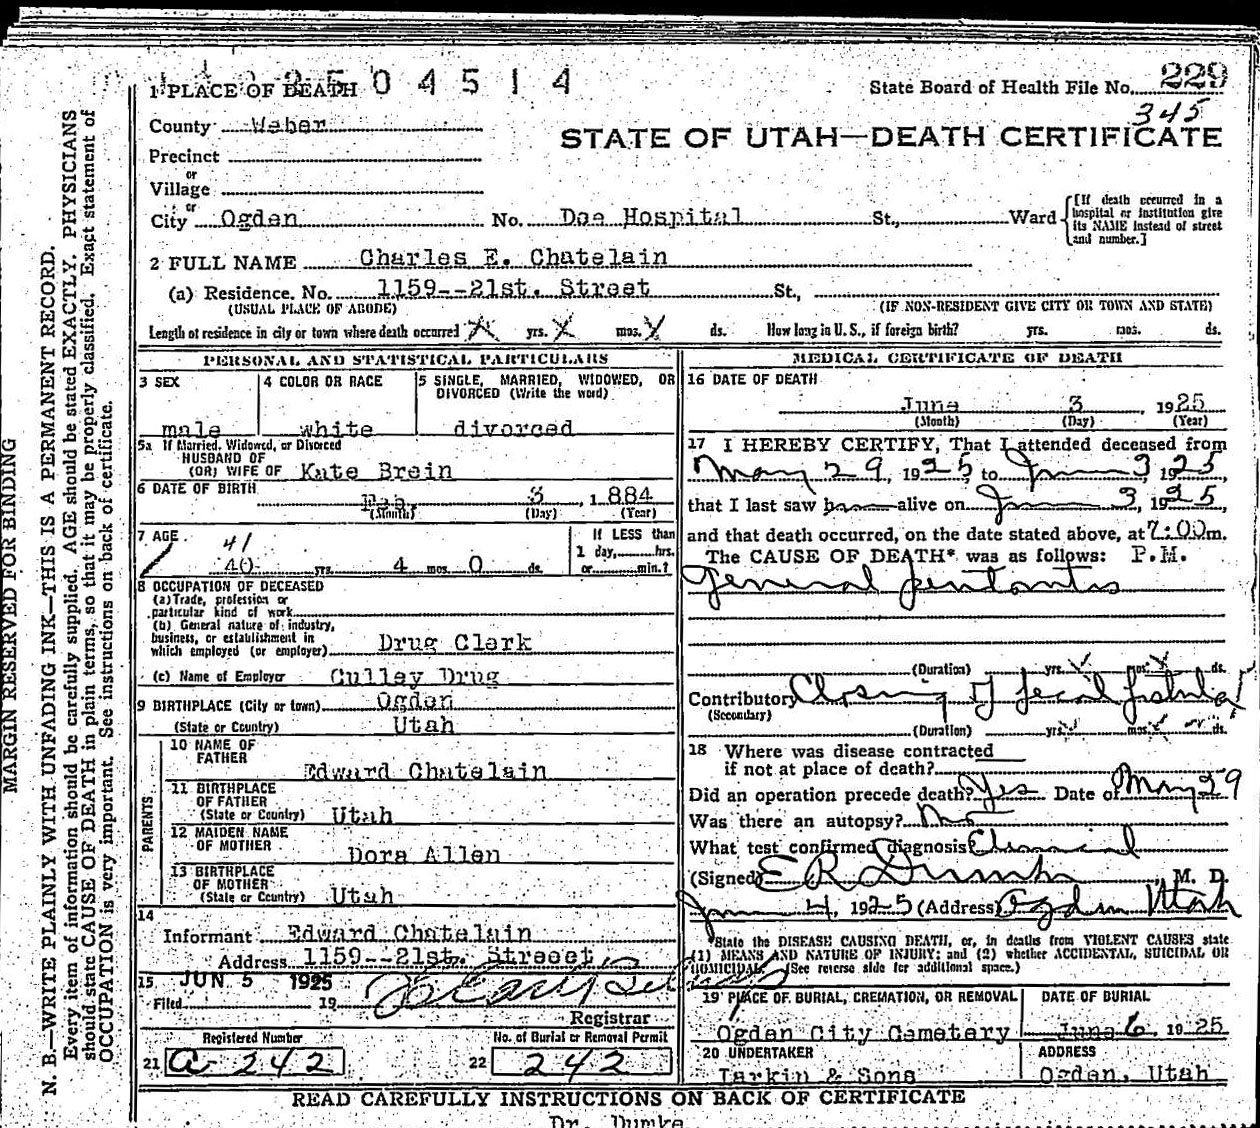 2504514
1 PLACE OF DEATH
State Board of Health File No. 229
345
County Weber
STATE OF UTAH—DEATH CERTIFICATE
Precinct
or
Village
or
City Ogden No. Dee Hospital St., Ward
[If death occurred in a hospital or institution give its NAME instead of street and number.]
2 FULL NAME Charles E. Chatelain
(a) Residence. No. 1159--21st. Street St.,
(USUAL PLACE OF ABODE) (IF NON-RESIDENT GIVE CITY OR TOWN AND STATE)
Length of residence in city or town where death occurred X yrs. X mos. X ds. How long in U. S., if foreign birth? yrs. mos. ds.
PERSONAL AND STATISTICAL PARTICULARS
3 SEX
male
4 COLOR OR RACE
white
5 SINGLE, MARRIED, WIDOWED, OR
DIVORCED (Write the word)
divorced
5a If Married, Widowed, or Divorced
HUSBAND OF
(OR) WIFE OF Kate Brein
6 DATE OF BIRTH Feb. 3, 1884
(Month) (Day) (Year)
7 AGE 41
40 yrs. 4 mos. 0 ds.
If LESS than
1 day, hrs.
or min.?
8 OCCUPATION OF DECEASED
(a) Trade, profession or
particular kind of work
(b) General nature of industry,
business, or establishment in
which employed (or employer) Drug Clerk
(c) Name of Employer Culley Drug
9 BIRTHPLACE (City or town) Ogden
(State or Country) Utah
PARENTS
10 NAME OF
FATHER
Edward Chatelain
11 BIRTHPLACE
OF FATHER
(State or Country) Utah
12 MAIDEN NAME
OF MOTHER
Dora Allen
13 BIRTHPLACE
OF MOTHER
(State or Country) Utah
14
Informant Edward Chatelain
Address 1159--21st. Streeet,
15 JUN 5 1925
Filed 19
Registrar
Registered Number
21 a-242
No. of Burial or Removal Permit
22 242
MEDICAL CERTIFICATE OF DEATH
16 DATE OF DEATH
June 3, 1925
(Month) (Day) (Year)
17 I HEREBY CERTIFY, That I attended deceased from
May 29, 1925, to June 3, 1925
that I last saw h alive on June 3, 1925,
and that death occurred, on the date stated above, at 7:00 m.
The CAUSE OF DEATH* was as follows: P.M.
General peritonitis
(Duration) yrs. mos. ds.
Contributory Closing of fecal fistula
(Secondary)
(Duration) yrs. mos. ds.
18 Where was disease contracted
if not at place of death?
Did an operation precede death? Yes Date of May 29
Was there an autopsy? no
What test confirmed diagnosis Clinical
(Signed) E R Dumke, M. D.
June 4, 1925 (Address) Ogden Utah
*State the DISEASE CAUSING DEATH, or, in deaths from VIOLENT CAUSES state
(1) MEANS AND NATURE OF INJURY; and (2) whether ACCIDENTAL, SUICIDAL OR
HOMICIDAL. (See reverse side for additional space.)
19 PLACE OF BURIAL, CREMATION, OR REMOVAL
Ogden City Cemetery
DATE OF BURIAL
June 6, 1925
20 UNDERTAKER
Larkin & Sons
ADDRESS
Ogden, Utah
READ CAREFULLY INSTRUCTIONS ON BACK OF CERTIFICATE
Dr. Dumke
MARGIN RESERVED FOR BINDING
N. B.—WRITE PLAINLY WITH UNFADING INK—THIS IS A PERMANENT RECORD.
Every item of information should be carefully supplied. AGE should be stated EXACTLY. PHYSICIANS
should state CAUSE OF DEATH in plain terms, so that it may be properly classified. Exact statement of
OCCUPATION is very important. See instructions on back of certificate.